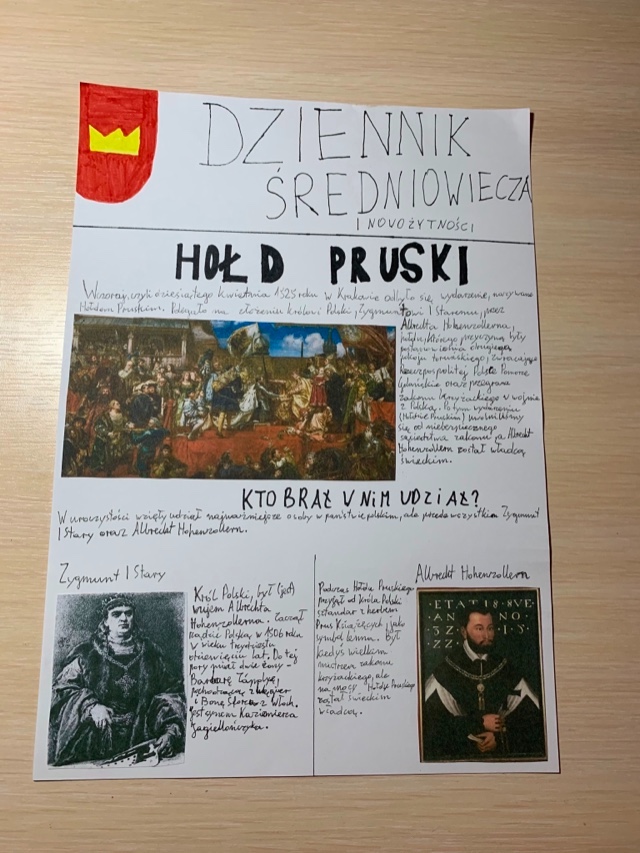 DZIENNIK
ŚREDNIOWIECZA
I NOVOŻYTNOŚCI
HOŁD PRUSKI
Wczoraj, czyli dziesiątego kwietnia 1525 roku w Krakowie odbyło się wydarzenie, nazywane
Hołdem Pruskim. Polegało na złożeniu królowi Polski, Zygmuntowi I Staremu, przez
Albrechta Hohenzollerna,
hołdu, którego przyczyną były
postanowienia drugiego
pokoju toruńskiego, zwracające
Rzeczpospolitej Polsce Pomorze
Gdańskie oraz przegrana
zakonu krzyżackiego w wojnie
z Polską. Po tym wydarzeniu
(Hołdzie Pruskim) uwolniliśmy
się od niebezpiecznego
sąsiedztwa zakonu, a Albrecht
Hohenzollern został władcą
świeckim.
KTO BRAŁ V NIM UDZIAŁ?
W uroczystości wzięły udział najważniejsze osoby w państwie polskim, ale przede wszystkim Zygmunt
I Stary oraz Albrecht Hohenzollern.
Zygmunt I Stary
Król Polski, był (jest)
wujem Albrechta
Hohenzollerna. Zaczął
rządzić Polską w 1506 roku
w wieku trzydziestu
dziewięciu lat. Do tej
pory miał dwie żony -
Barbarę Zápolyę,
pochodzącą z Węgier
i Bonę Sforzę z Włoch.
Jest synem Kazimierza
Jagiellończyka.
Albrecht Hohenzollern
Podczas Hołdu Pruskiego
przyjął od króla Polski
sztandar z herbem
Prus Książęcych jako
symbol lenna. Był
kiedyś wielkim
mistrzem zakonu
krzyżackiego, ale
na mocy Hołdu Pruskiego
został świeckim
władcą.
ETATI S 8 VE
AN NO
3Z I S
ZZ